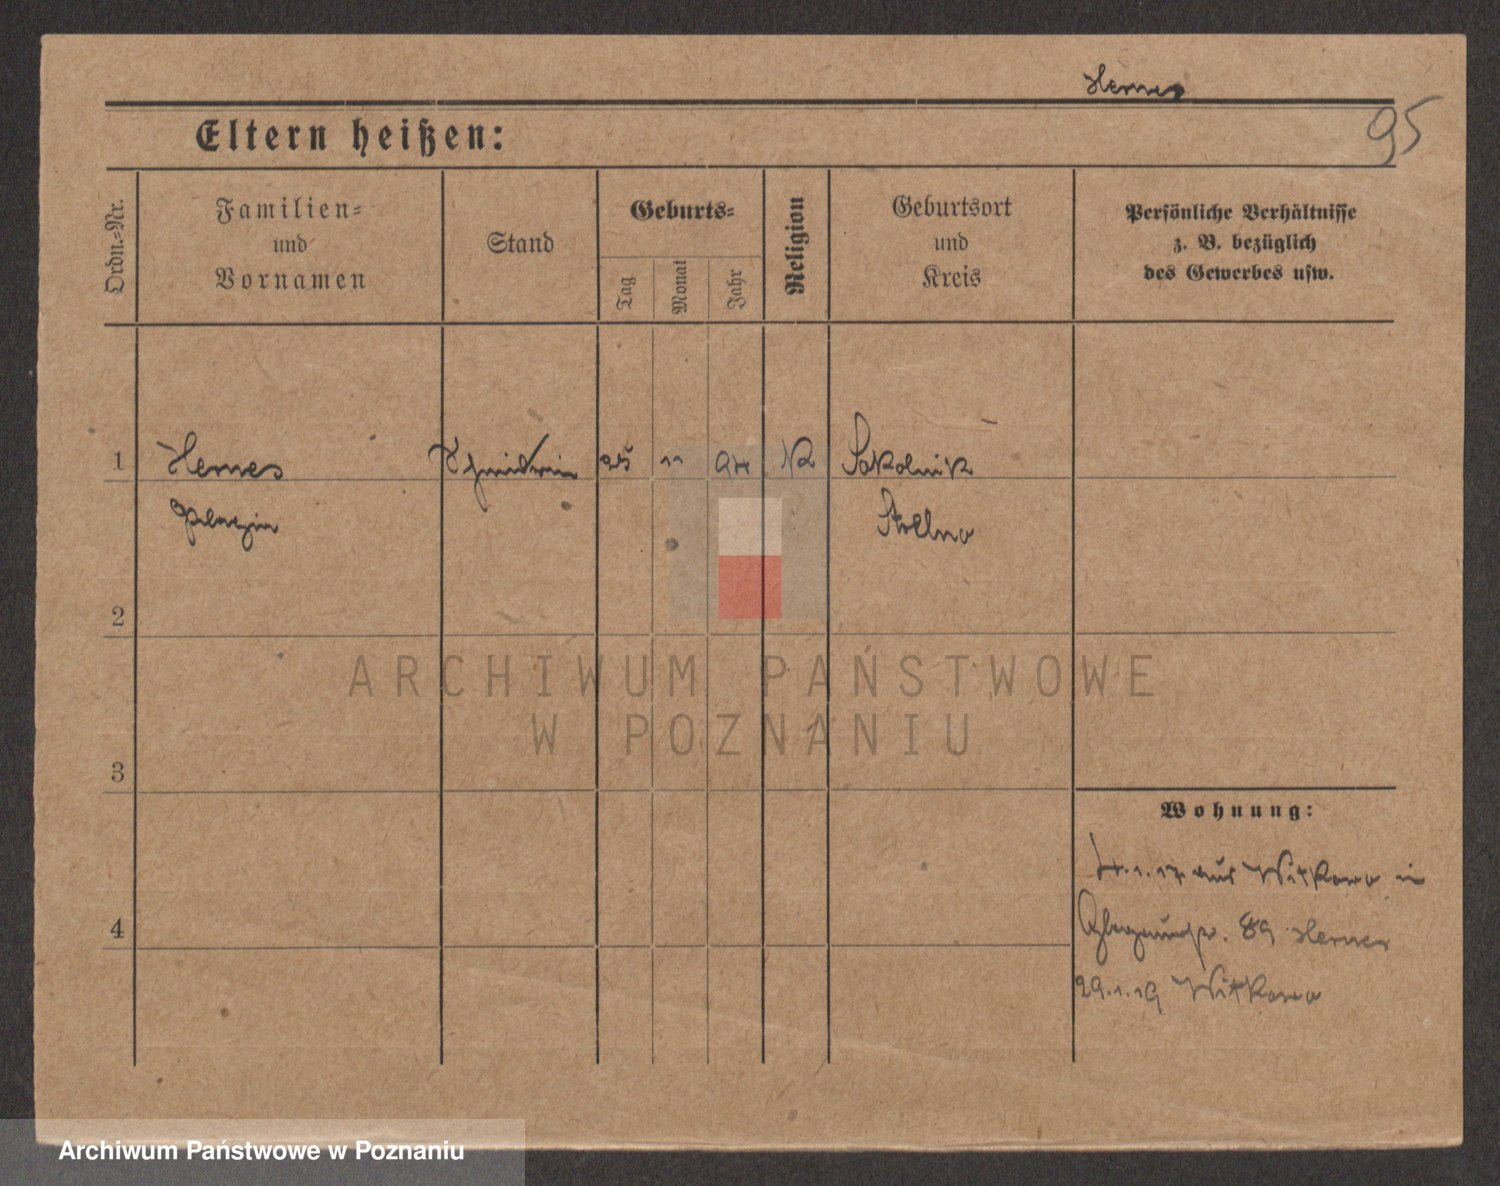 Hernes
95
Eltern heißen:
Ordn.-Nr.
Familien-
und
Vornamen
Stand
Geburts-
Tag
Monat
Jahr
Religion
Geburtsort
und
Kreis
Persönliche Verhältnisse
z. B. bezüglich
des Gewerbes usw.
1
Hernes
25
11
94
K
Sokolnik
Strelno
2
ARCHIWUM PAŃSTWOWE
W POZNANIU
3
Wohnung:
4.1.17 aus Witkowo in
89 Hernes
4
29.1.19 Witkowo
Archiwum Państwowe w Poznaniu